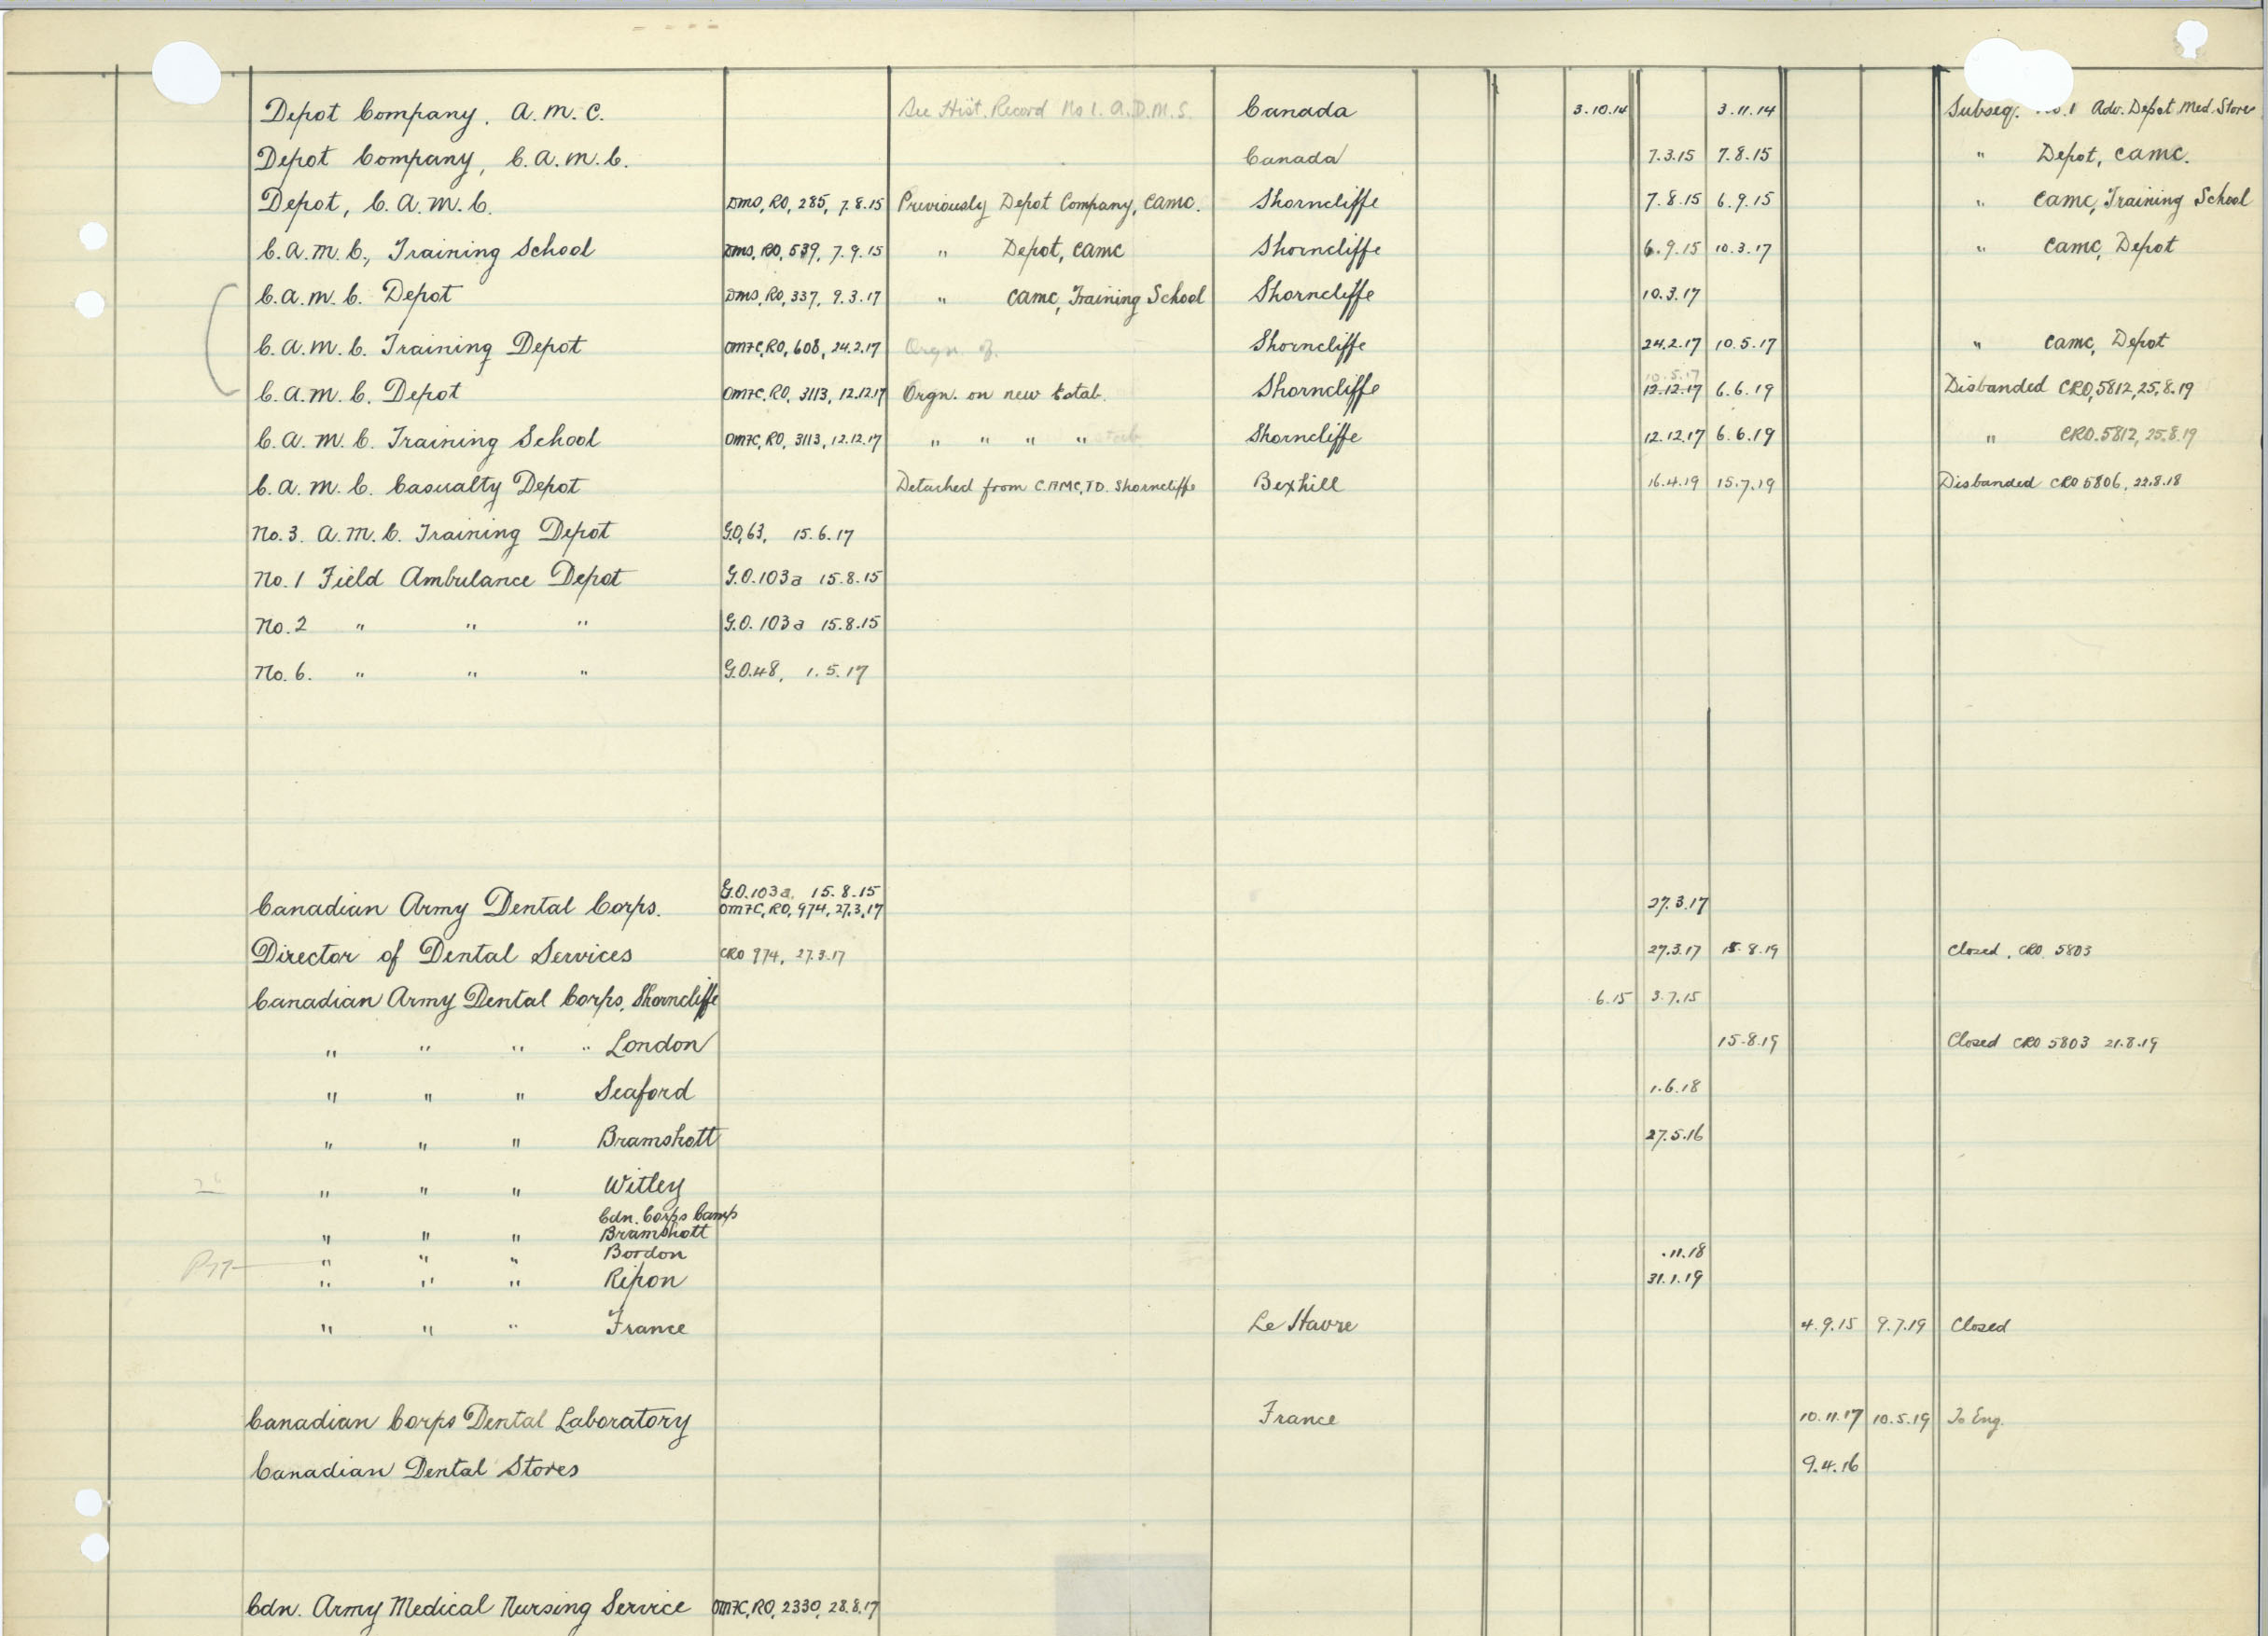 Depot Company, A.M.C. See Hist. Record No 1. A.D.M.S. Canada 3.10.14 3.11.14 Subseq. No.1 Adv. Depot Med. Stores
Depot Company, C.A.M.C. Canada 7.3.15 7.8.15 " Depot, CAMC.
Depot, C.A.M.C. DMS, RO, 285, 7.8.15 Previously Depot Company, CAMC. Shorncliffe 7.8.15 6.9.15 " CAMC, Training School
C.A.M.C., Training School DMS, RO, 539, 7.9.15 " Depot, CAMC Shorncliffe 6.9.15 10.3.17 " CAMC, Depot
C.A.M.C. Depot DMS, RO, 337, 9.3.17 " CAMC, Training School Shorncliffe 10.3.17
C.A.M.C. Training Depot OMFC, RO, 608, 24.2.17 Orgn. of. Shorncliffe 24.2.17 10.5.17 " CAMC, Depot
10.5.17
C.A.M.C. Depot OMFC, RO, 3113, 12.12.17 Orgn. on new Estab. Shorncliffe 12.12.17 6.6.19 Disbanded CRO, 5812, 25.8.19
C.A.M.C. Training School OMFC, RO, 3113, 12.12.17 " " " " Shorncliffe 12.12.17 6.6.19 " CRO. 5812, 25.8.19
C.A.M.C. Casualty Depot Detached from C.AMC, T.D. Shorncliffe Bexhill 16.4.19 15.7.19 Disbanded CRO 5806, 22.8.18
No. 3. A.M.C. Training Depot G.O, 63, 15.6.17
No. 1 Field Ambulance Depot G.O. 103a 15.8.15
No. 2 " " " G.O. 103a 15.8.15
No. 6. " " " G.O. 48, 1.5.17
G.O. 103a, 15.8.15
Canadian Army Dental Corps. OMFC, RO, 974, 27.3.17 27.3.17
Director of Dental Services CRO 974, 27.3.17 27.3.17 15.8.19 Closed, CRO 5803
Canadian Army Dental Corps, Shorncliffe 6.15 3.7.15
" " " " London 15.8.19 Closed CRO 5803 21.8.19
" " " Seaford 1.6.18
" " " Bramshott 27.5.16
" " " Witley
Cdn. Corps Camp
" " " Bramshott
" " " Bordon .11.18
" " " Ripon 31.1.19
" " " France Le Havre 4.9.15 9.7.19 Closed
Canadian Corps Dental Laboratory France 10.11.17 10.5.19 To Eng.
Canadian Dental Stores 9.4.16
Cdn. Army Medical Nursing Service OMFC, RO, 2330, 28.8.17